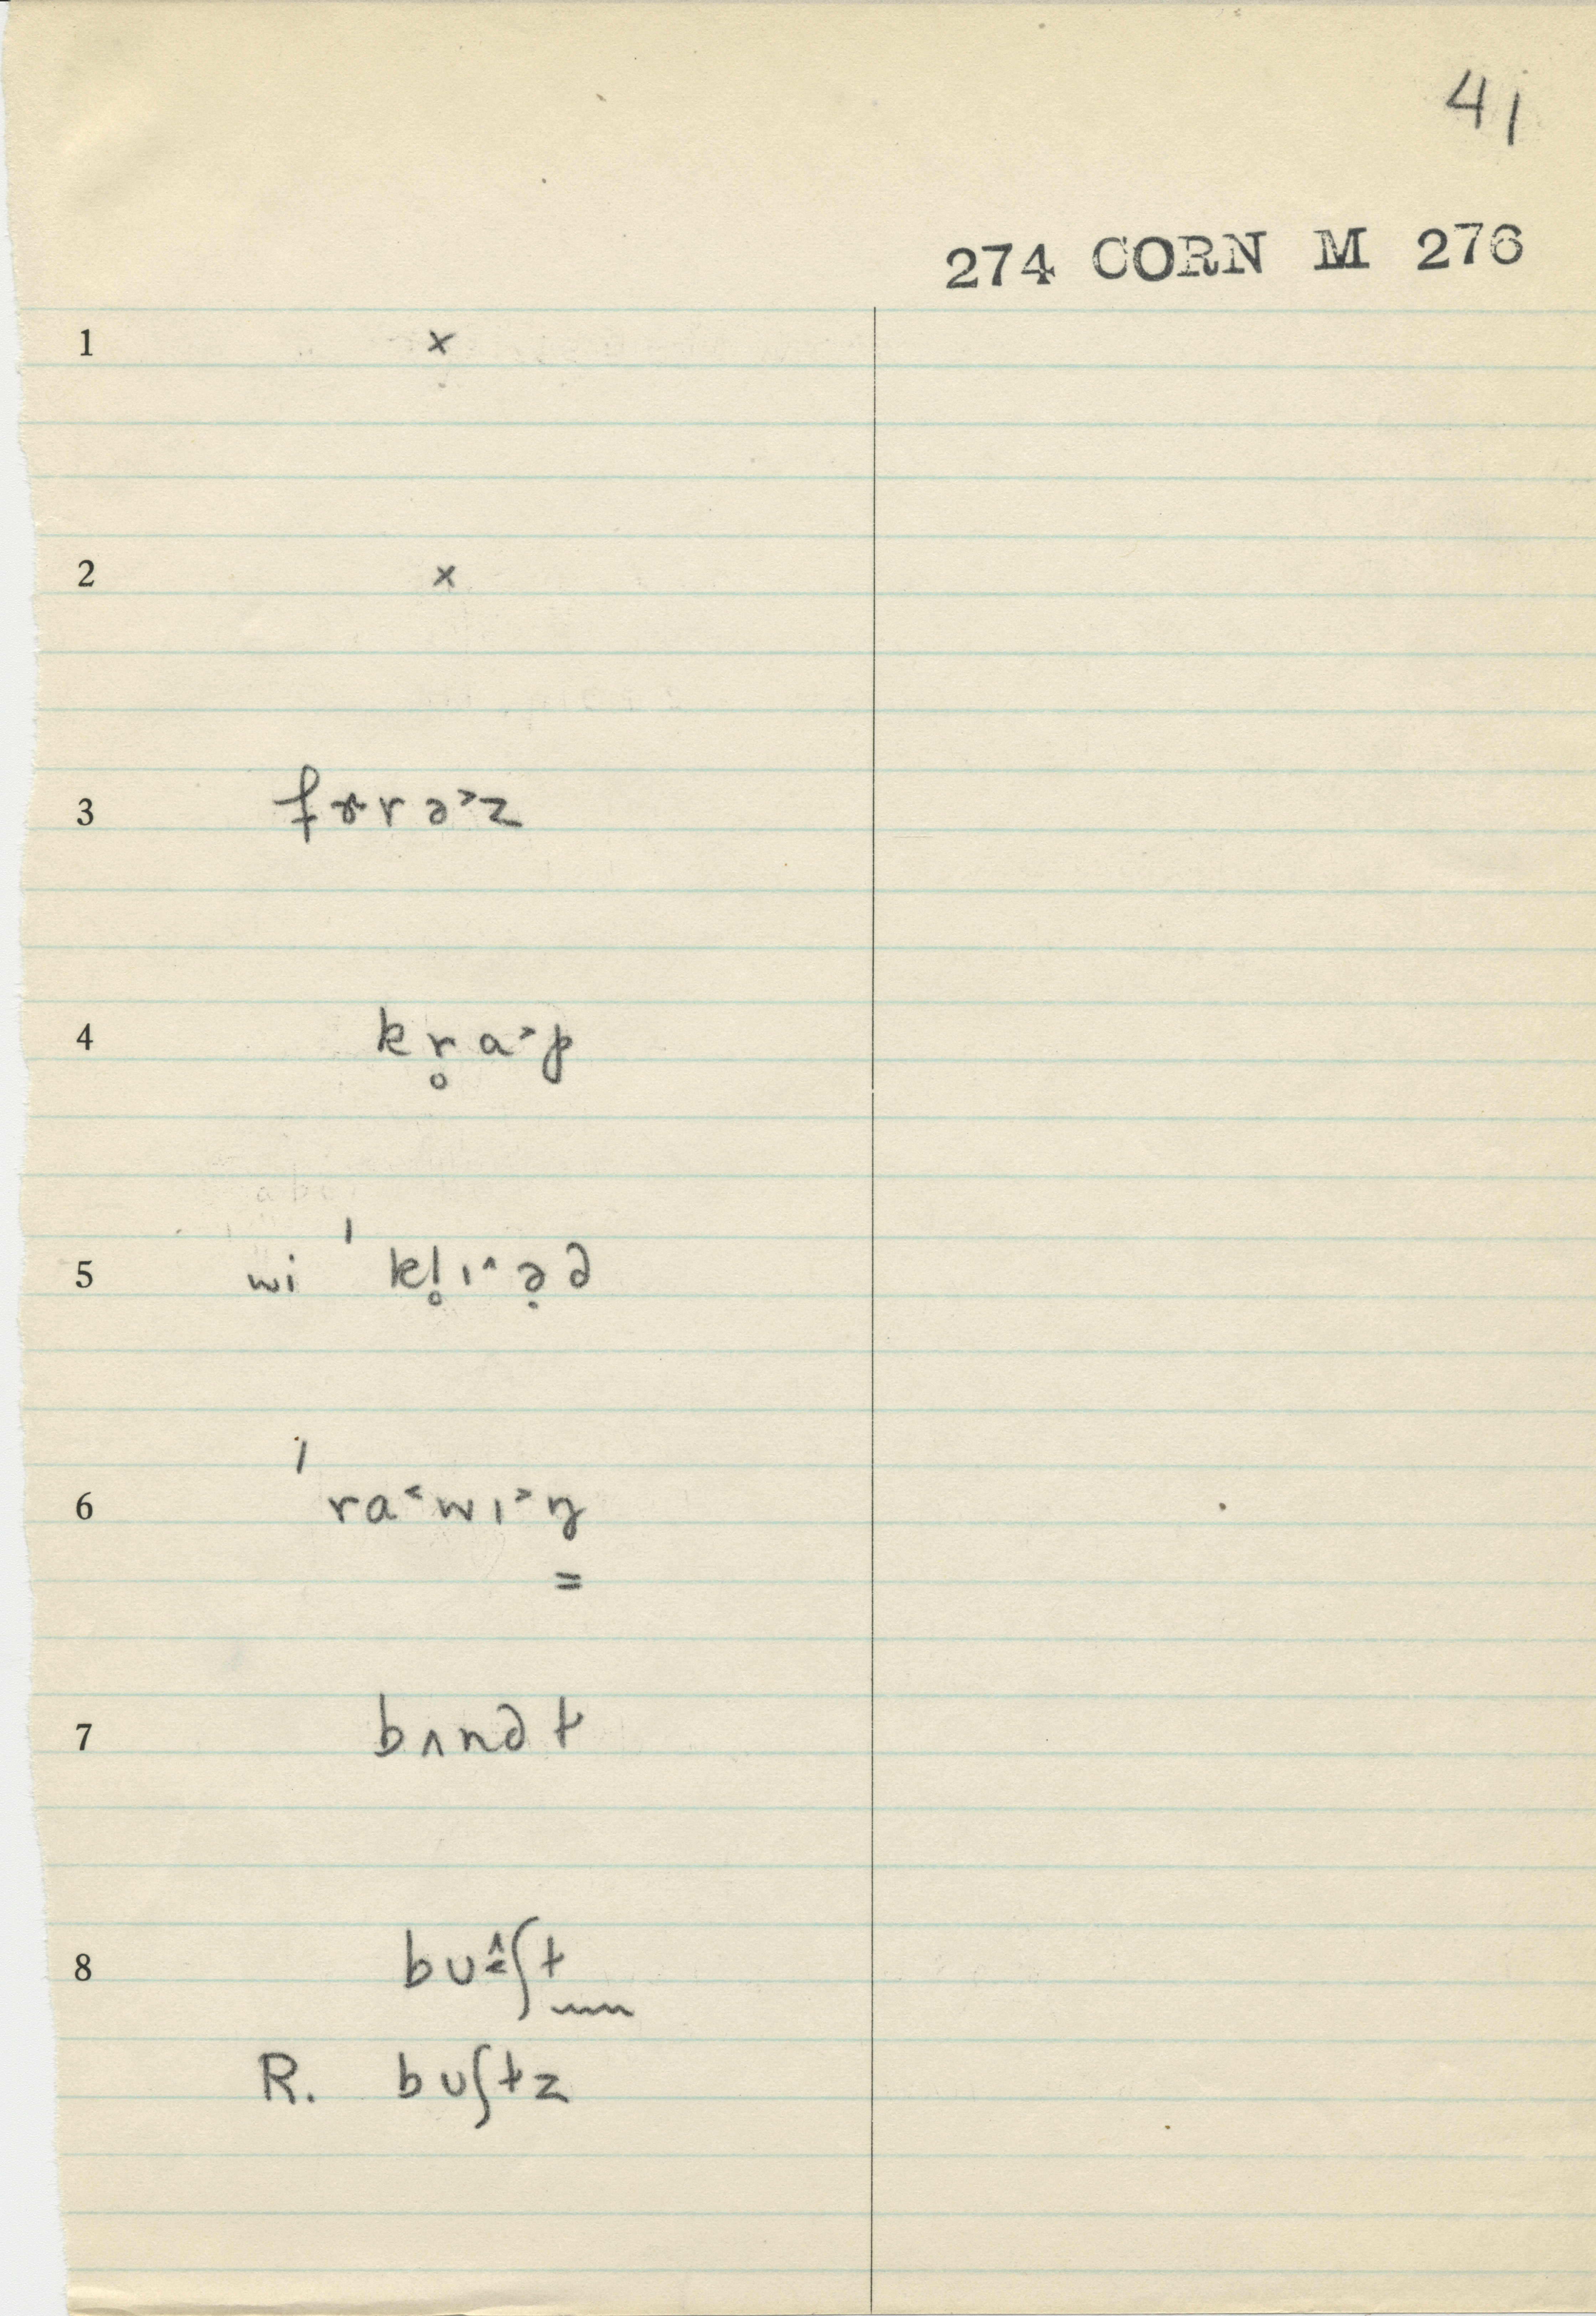 41
274 CORN M 276
1 x
2 x
3 fɝrə˃z
4 kr̥a˃p
5 wi ˈ kl̥ɪ˄ə̣d
6 ˈ ra˂wɪ˃ŋ
=
7 bʌndt
8 bʊ˄˂ʃt
R. bʊʃtz